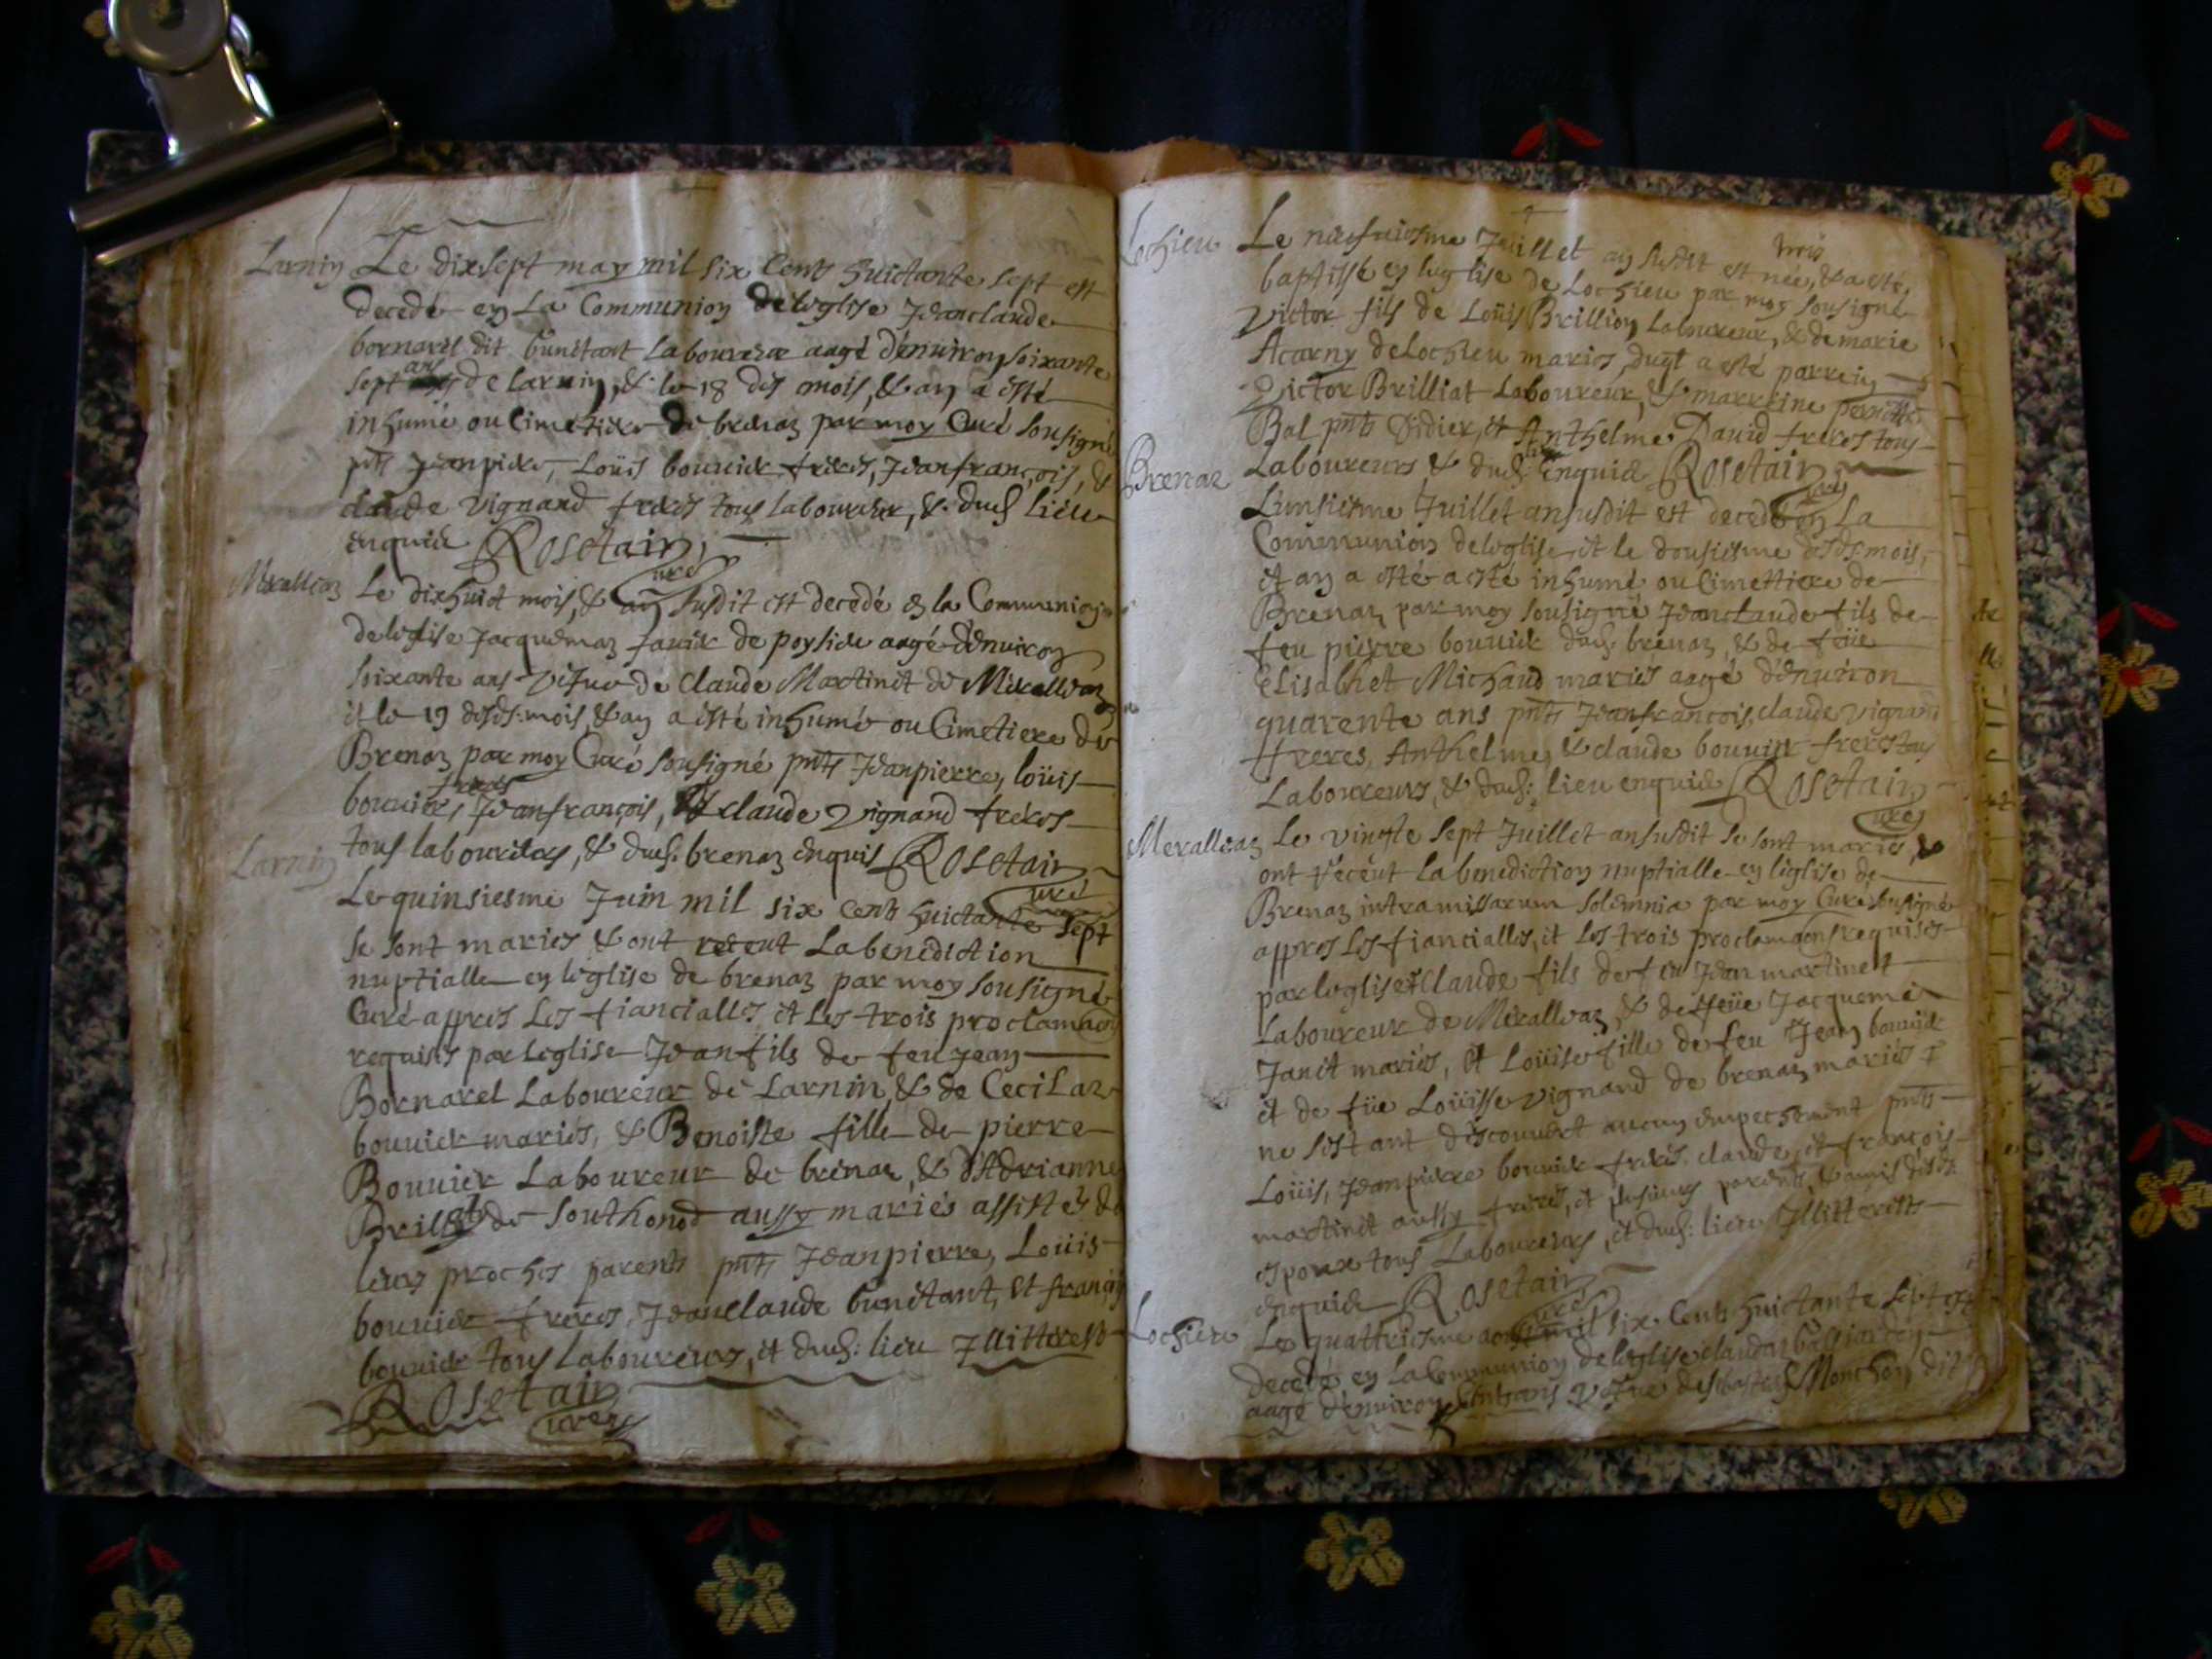 Larnin
Le dixsept may mil six Cents huictante sept est
decedé en La Communion de leglise Jeanclaude
bornarel dit bunctant Laboureur aagé denuiron soixante
sept ans de Larnin, & le 18 des mois, & an a esté
inhumé ou Cimetiere de brenaz par moy Curé sousigné
pnts Jeanpierre, Loüis bouuier freres, Jeanfrançois, &
claude vignand freres tous laboureur, & dud lieu
enquis Rosetain,
curé
Meralleaz
Le dixhuict mois, & an susdit est decedé en la Communion
de leglise Jacquemaz Janik de poysieu aagé denuiron
soixante ans vefue de Claude Martinet de Meralleaz
et le 19 desds: mois, & an a esté inhumé ou Cimetiere de
Brenaz par moy Curé sousigné pnts Jeanpierre, loüis
freres
bouuier, Jeanfrançois, & claude vignand freres
tous laboureurs, & dud: brenaz enquis Rosetain
curé
Larnin
Le quinsiesme Juin mil six Cents huictante sept
se sont mariés & ont receut La benediction
nuptialle en leglise de brenaz par moy sousigné
Curé appres Les fianciallés et Les trois proclamaons
requises par leglise Jean fils de feu Jean
Bornarel Laboureur de Larnin, & de Cecilaz
bouuier mariés, & Benoiste fille de pierre
Bouuier Laboureur de brenaz, & d'Adrianne
Brillat de Southonod aussy mariés assistés de
leurs proches parents pnts Jeanpierre, Loüis
bouuier freres, Jeanclaude bunctant, et françois
bouuier tous Laboureurs, et dud: lieu Illitterests
Rosetain
curé
Lochieu
Le neufuiesme Juillet an susdit est née, & a esté
baptissé en leglise de Lochieu par moy sousigné
Victor fils de Loüis Brillion Laboureur, & de marie
Acarny de Lochieu mariés, duqt a esté parrein
Victor Brilliat Laboureur, & marreine pernette
Bal pnts Didier, et Anthelme Dauid freres tous
Laboureurs & dud: lieu enquis Rosetain
curé
Brenaz
L'unsiesme Juillet ansusdit est decedé en La
Communion de leglise, et le dousiesme desds: mois,
et an a esté a esté inhumé ou Cimettiere de
Brenaz par moy sousigné Jeanclaude fils de
feu pierre bouuier dud: brenaz, & de feüe
Elisabhet Michaud mariés aagé d'enuiron
quarente ans pnts Jeanfrancois, claude vignand
freres, Anthelme, & claude bouuier freres tous
Laboureurs, & dud: lieu enquis Rosetain
curé
Meralleaz
Le vingte sept Juillet ansusdit se sont mariés, &
ont recéut la benediction nuptialle en l'eglise de
Brenaz intra missarum solemnia par moy Curé sousigné
appres Les fianciallés, et Les trois proclamaons requises
par leglise Claude fils de feu Jean martinet
Laboureur de Meralleaz, & de feüe Jacqueme
Janit mariés, et Loüise fille de feu Jean bouuier
et de füe Loüisse vignand de brenaz mariés
ne sestant descouuert aucun empechement pnts
Loüis, Jeanpierre bouuier freres, claude, et françois
martinet aussy freres, et plusieurs parents, & amis desds:
espoux tous Laboureurs, et dud: lieu Illitterests
enquis Rosetain
curé
Lochieu
Le quattriesme aoust mil six Cents huictante sept est
decedé en La Communion de leglise claudaz
aagé denuiron vefue de Monchon dit